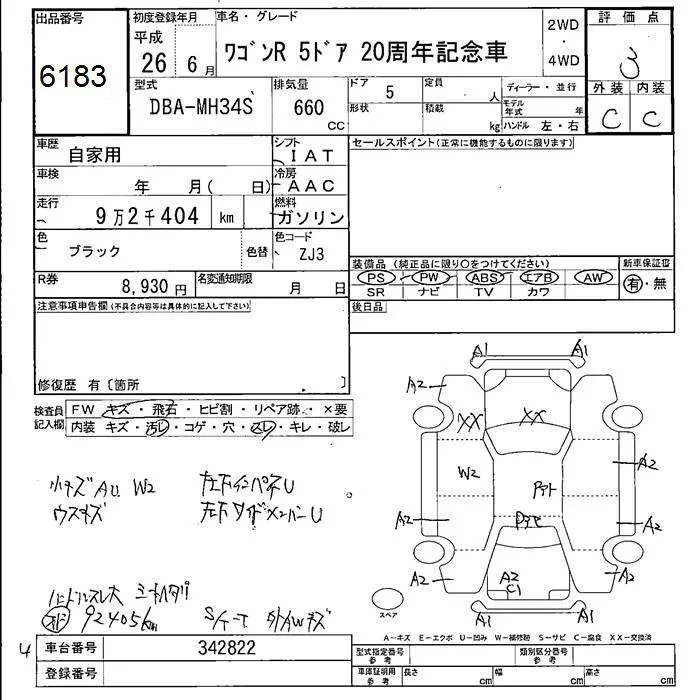 出品番号
6183
初度登録年月
平成
26 6月
車名・グレード
ワゴンR 5ドア 20周年記念車
2WD
・
4WD
評価点
3
外装 内装
C C
型式
DBA-MH34S
排気量
660
CC
ドア
5
形状
定員
人
積載
kg
ディーラー・並行
モデル年式 年
ハンドル 左・右
車歴
自家用
シフト
IAT
車検
年 月( 日)
冷房
AAC
走行
9万2千404 km
燃料
ガソリン
色
ブラック
色替
色コード
ZJ3
R券
8,930円
名変通知期限
月 日
セールスポイント(正常に機能するものに限ります)
装備品(純正品に限り○をつけてください)
PS PW ABS エアB AW
SR ナビ TV カワ
新車保証書
有・無
後日品
注意事項申告欄(不具合内容等は具体的に記入して下さい)
修復歴 有〔箇所 〕
検査員記入欄
FW キズ・飛石・ヒビ割・リペア跡・×要
内装 キズ・汚レ・コゲ・穴・スレ・キレ・破レ
小キズAU W2
ウスキズ
左下インパネU
左下サイドメンバーU
ハンドルスレ大
92405km
S/T-T 外AWキズ
A1 A1
A2
XX XX
W2
A2
A2 A2
A2 A2
A2
C1
A1 A1
スペア
A-キズ E-エクボ U-凹み W-補修跡 S-サビ C-腐食 XX-交換済
4
車台番号
342822
登録番号
型式指定番号
参考
類別区分番号
参考
車庫証明用
参考
長さ cm
幅 cm
高さ cm